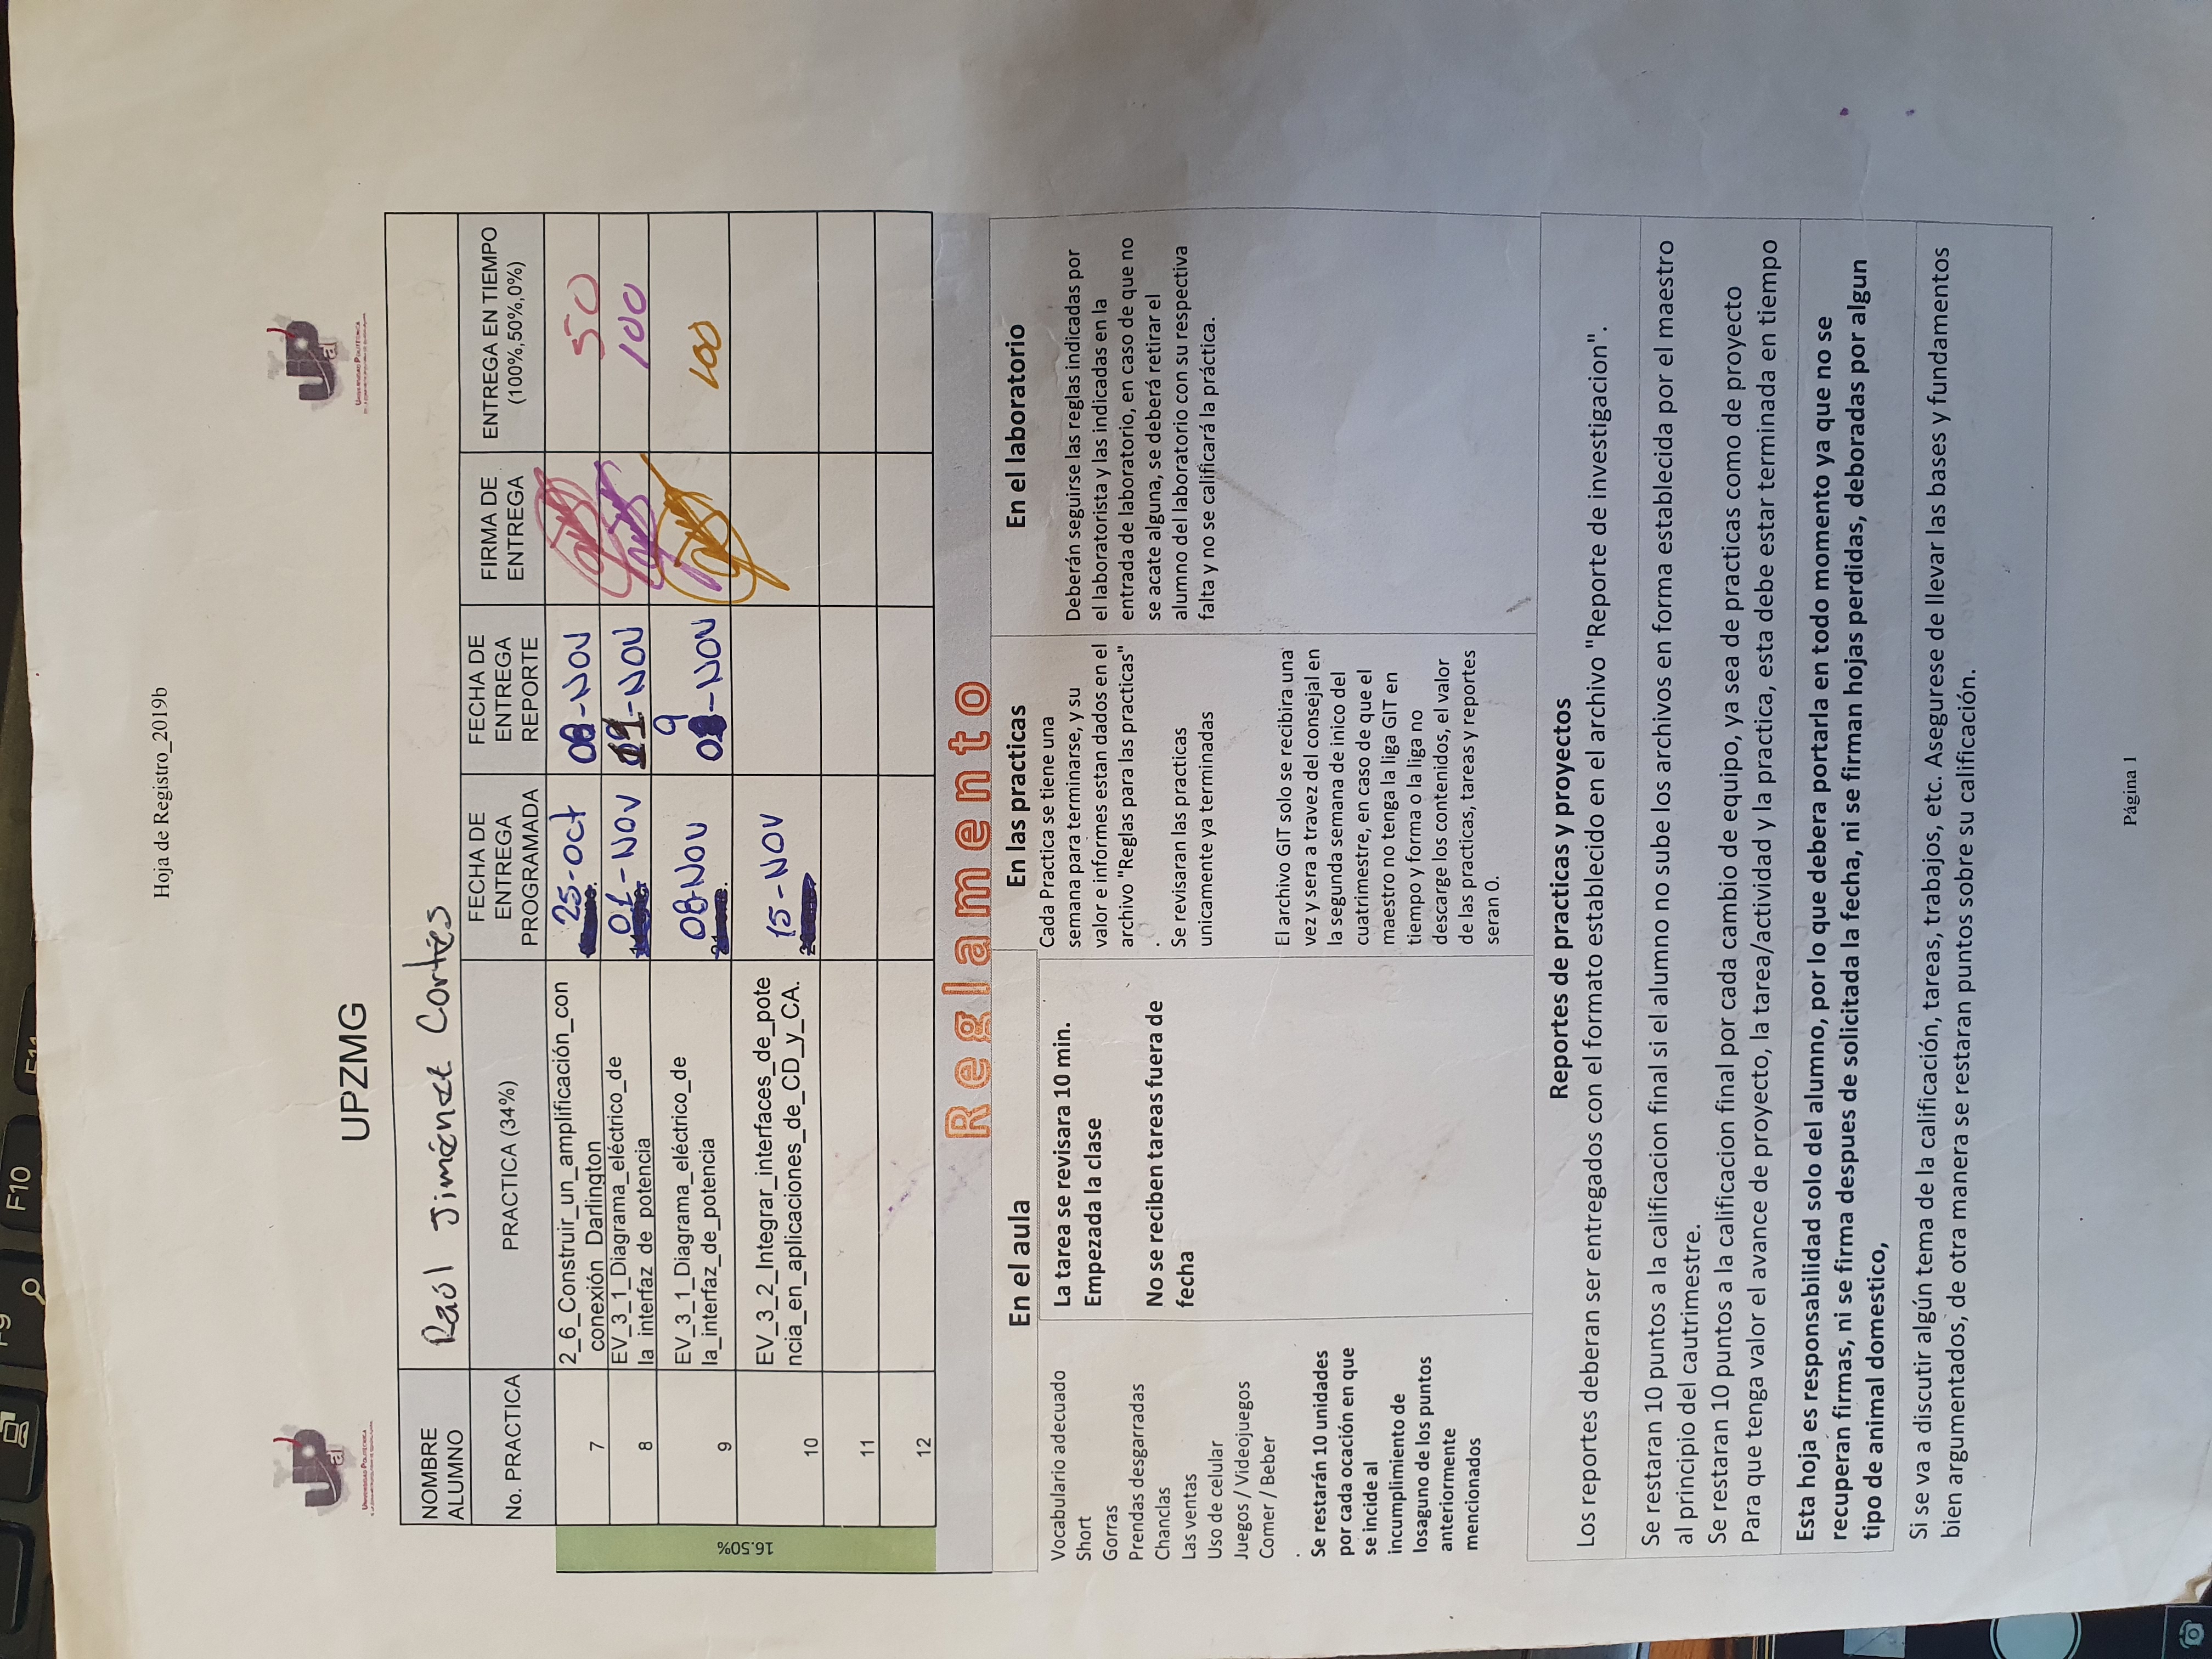 F9
F10
F11
Hoja de Registro_2019b
UPZMG
NOMBRE
ALUMNO
Raúl Jiménez Cortés
No. PRACTICA
PRACTICA (34%)
FECHA DE
ENTREGA
PROGRAMADA
FECHA DE
ENTREGA
REPORTE
FIRMA DE
ENTREGA
ENTREGA EN TIEMPO
(100%,50%,0%)
16.50%
7
2_6_Construir_un_amplificación_con
_conexión_Darlington
25-oct
08-NOV
50
8
EV_3_1_Diagrama_eléctrico_de
la_interfaz_de_potencia
01-NOV
-NOV
100
9
EV_3_1_Diagrama_eléctrico_de
la_interfaz_de_potencia
08-NOV
9
0 -NOV
100
10
EV_3_2_Integrar_interfaces_de_pote
ncia_en_aplicaciones_de_CD_y_CA.
15-NOV
11
12
Reglamento
En el aula
Vocabulario adecuado
Short
Gorras
Prendas desgarradas
Chanclas
Las ventas
Uso de celular
Juegos / Videojuegos
Comer / Beber
.
Se restarán 10 unidades
por cada ocación en que
se incide al
incumplimiento de
losaguno de los puntos
anteriormente
mencionados
La tarea se revisara 10 min.
Empezada la clase
No se reciben tareas fuera de
fecha
En las practicas
Cada Practica se tiene una
semana para terminarse, y su
valor e informes estan dados en el
archivo "Reglas para las practicas"
.
Se revisaran las practicas
unicamente ya terminadas
El archivo GIT solo se recibira una
vez y sera a travez del consejal en
la segunda semana de inico del
cuatrimestre, en caso de que el
maestro no tenga la liga GIT en
tiempo y forma o la liga no
descarge los contenidos, el valor
de las practicas, tareas y reportes
seran 0.
En el laboratorio
Deberán seguirse las reglas indicadas por
el laboratorista y las indicadas en la
entrada de laboratorio, en caso de que no
se acate alguna, se deberá retirar el
alumno del laboratorio con su respectiva
falta y no se calificará la práctica.
Reportes de practicas y proyectos
Los reportes deberan ser entregados con el formato establecido en el archivo "Reporte de investigacion".
Se restaran 10 puntos a la calificacion final si el alumno no sube los archivos en forma establecida por el maestro
al principio del cautrimestre.
Se restaran 10 puntos a la calificacion final por cada cambio de equipo, ya sea de practicas como de proyecto
Para que tenga valor el avance de proyecto, la tarea/actividad y la practica, esta debe estar terminada en tiempo
Esta hoja es responsabilidad solo del alumno, por lo que debera portarla en todo momento ya que no se
recuperan firmas, ni se firma despues de solicitada la fecha, ni se firman hojas perdidas, deboradas por algun
tipo de animal domestico,
Si se va a discutir algún tema de la calificación, tareas, trabajos, etc. Asegurese de llevar las bases y fundamentos
bien argumentados, de otra manera se restaran puntos sobre su calificación.
Página 1